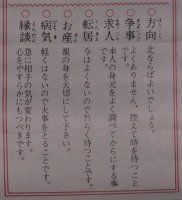 ○方向 北ならばよいでしょう。
○争事 よくありません。控えて時を待つことです。
○求人 本人の身元をよく調べてからにする事です。
○転居 今はよくないので暫らく待つことです。
○お産 親の身を大切にして下さい。
○病気 軽くはないので大事をとることです。
○縁談 急に相手の気が変わります。心をやすらかにもつべきです。